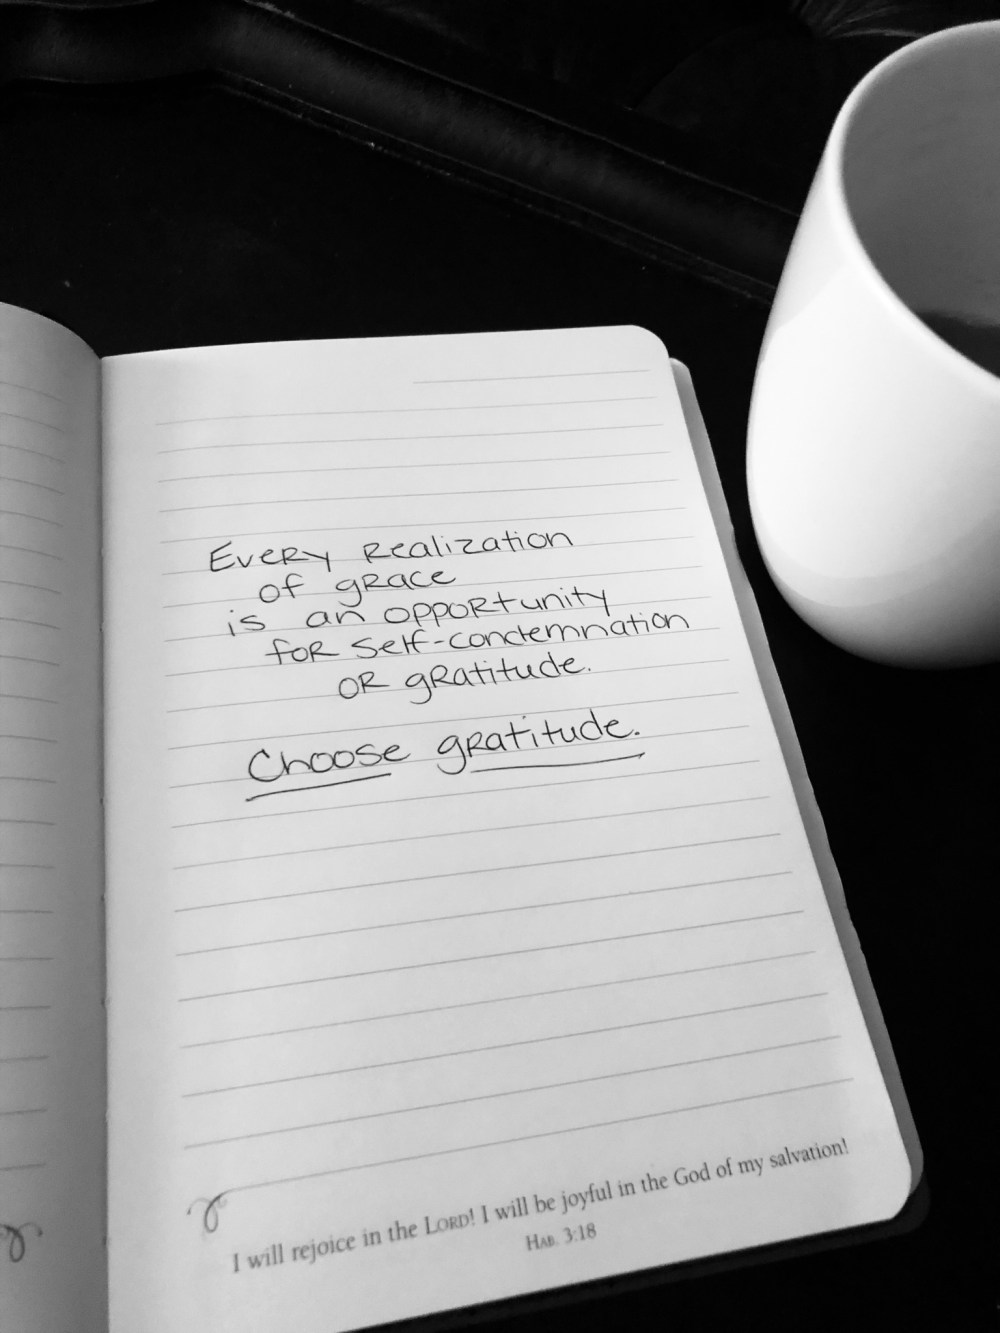 Every realization
of grace
is an opportunity
for self-condemnation
or gratitude.
Choose gratitude.
I will rejoice in the LORD! I will be joyful in the God of my salvation!
HAB. 3:18